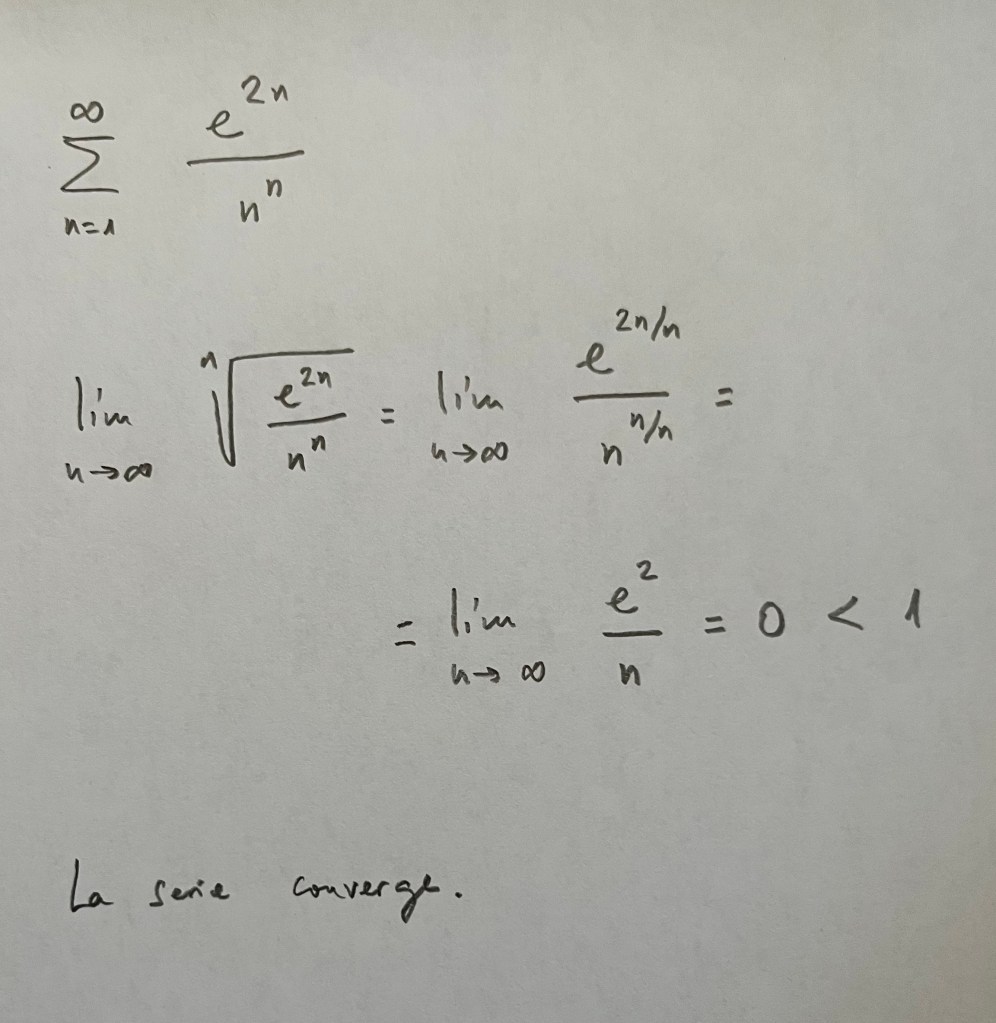 ∞
∑ e^{2n} / n^n
n=1
lim_{n→∞} \sqrt[n]{e^{2n} / n^n} = lim_{n→∞} e^{2n/n} / n^{n/n} =
= lim_{n→∞} e^2 / n = 0 < 1
La serie converge.